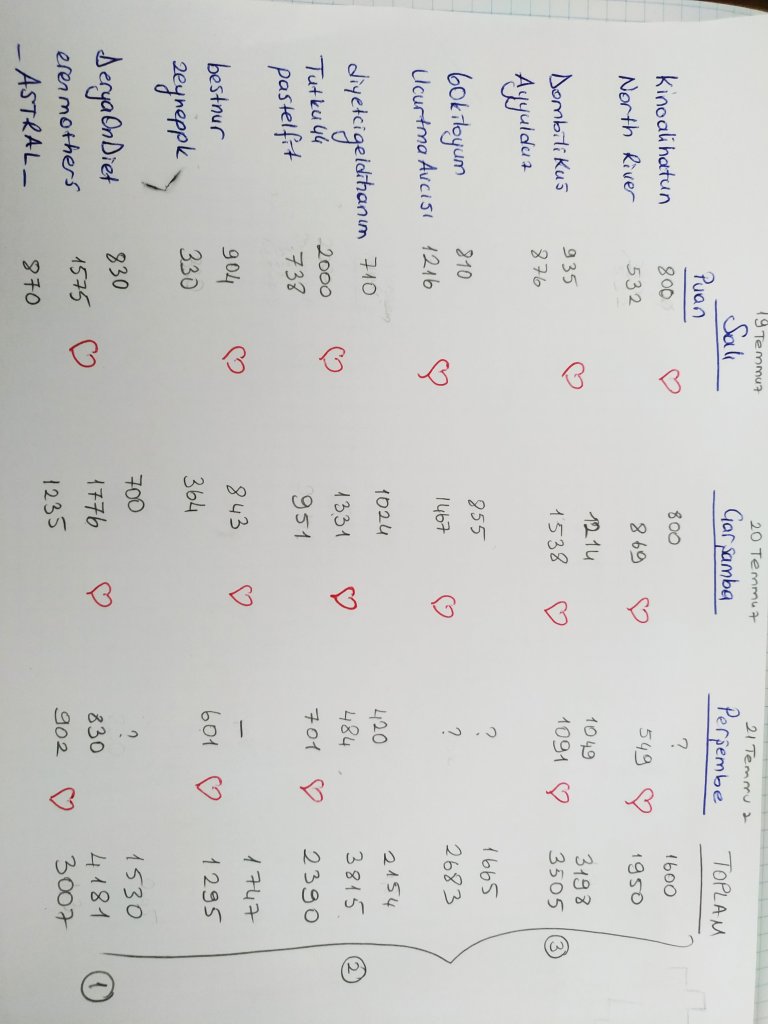 19 Temmuz 20 Temmuz 21 Temmuz
Salı Çarşamba Perşembe TOPLAM
Puan
kinoalihatun 800 ♡ 800 ? 1600
North River 532 869 ♡ 549 ♡ 1950
Dombilikuş 935 ♡ 1214 1049 3198
Ayyulduz 876 1538 ♡ 1091 ♡ 3505 ③
60kiloyum 810 855 ? 1665
UcurtmaAvcisi 1216 ♡ 1467 ♡ ? 2683
diyetcigeldihanim 710 1024 420 2154
Tutku44 2000 ♡ 1331 ♡ 484 3815 ②
pastelfit 738 951 701 ♡ 2390
bestnur 904 ♡ 843 ♡ – 1747
zeyneppk 330 364 601 ♡ 1295
DeryaOnDiet 830 700 ? 1530
erenmothers 1575 ♡ 1776 ♡ 830 4181 ①
_ASTRAL_ 870 1235 902 ♡ 3007